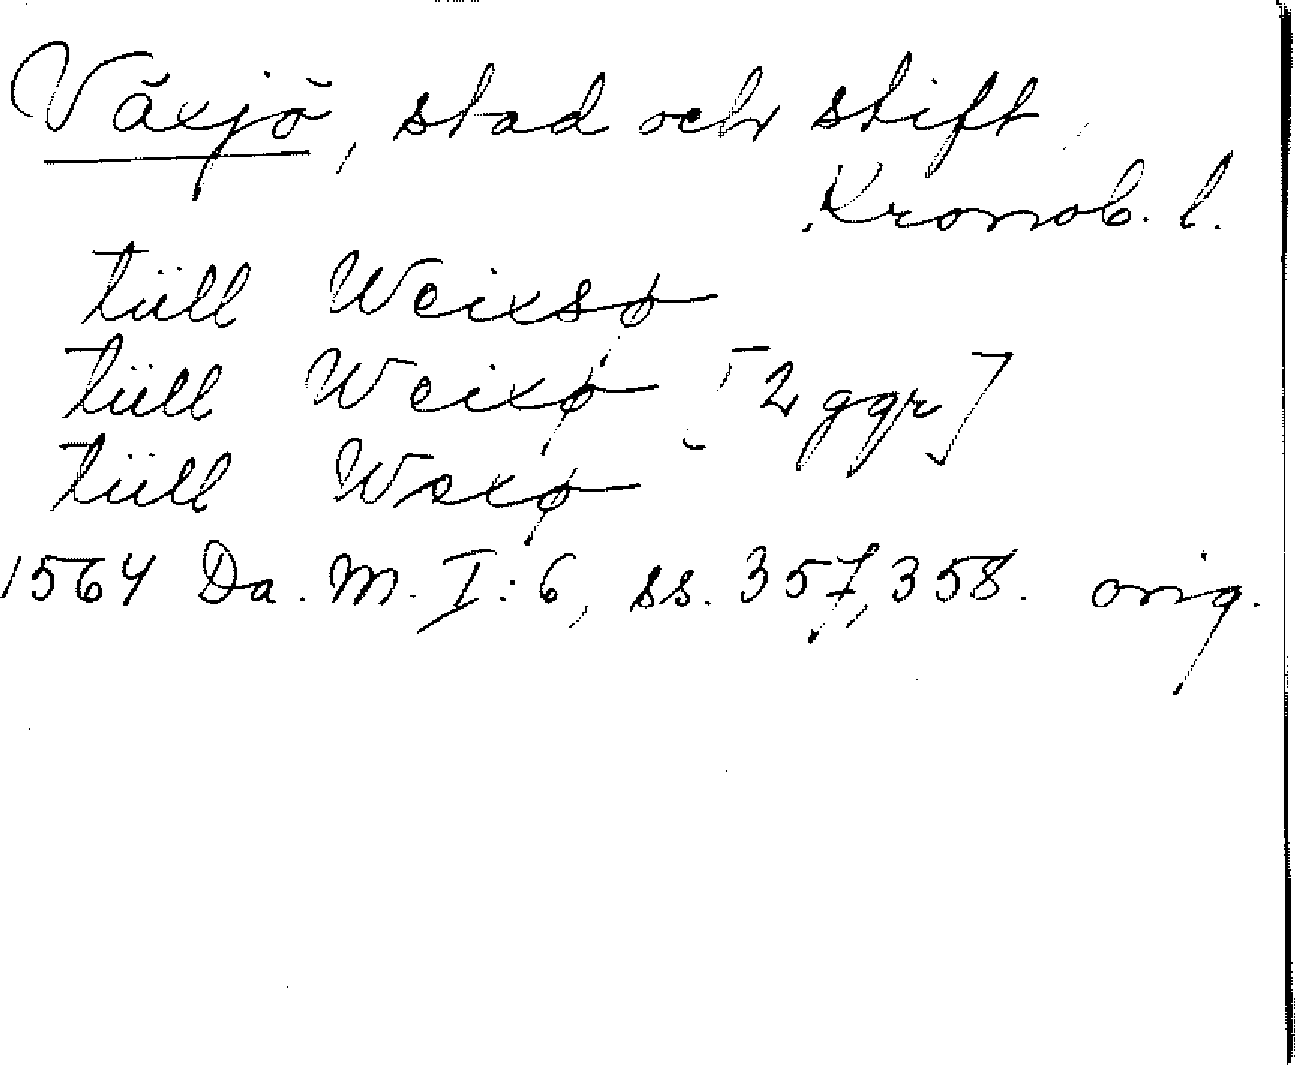 Växjö, stad och stift,
Kronob. l.
tüll Weixsø
tüll Weixø [2 ggr]
tüll Wexø
1564 Da. M. I:6, ss. 357, 358. orig.